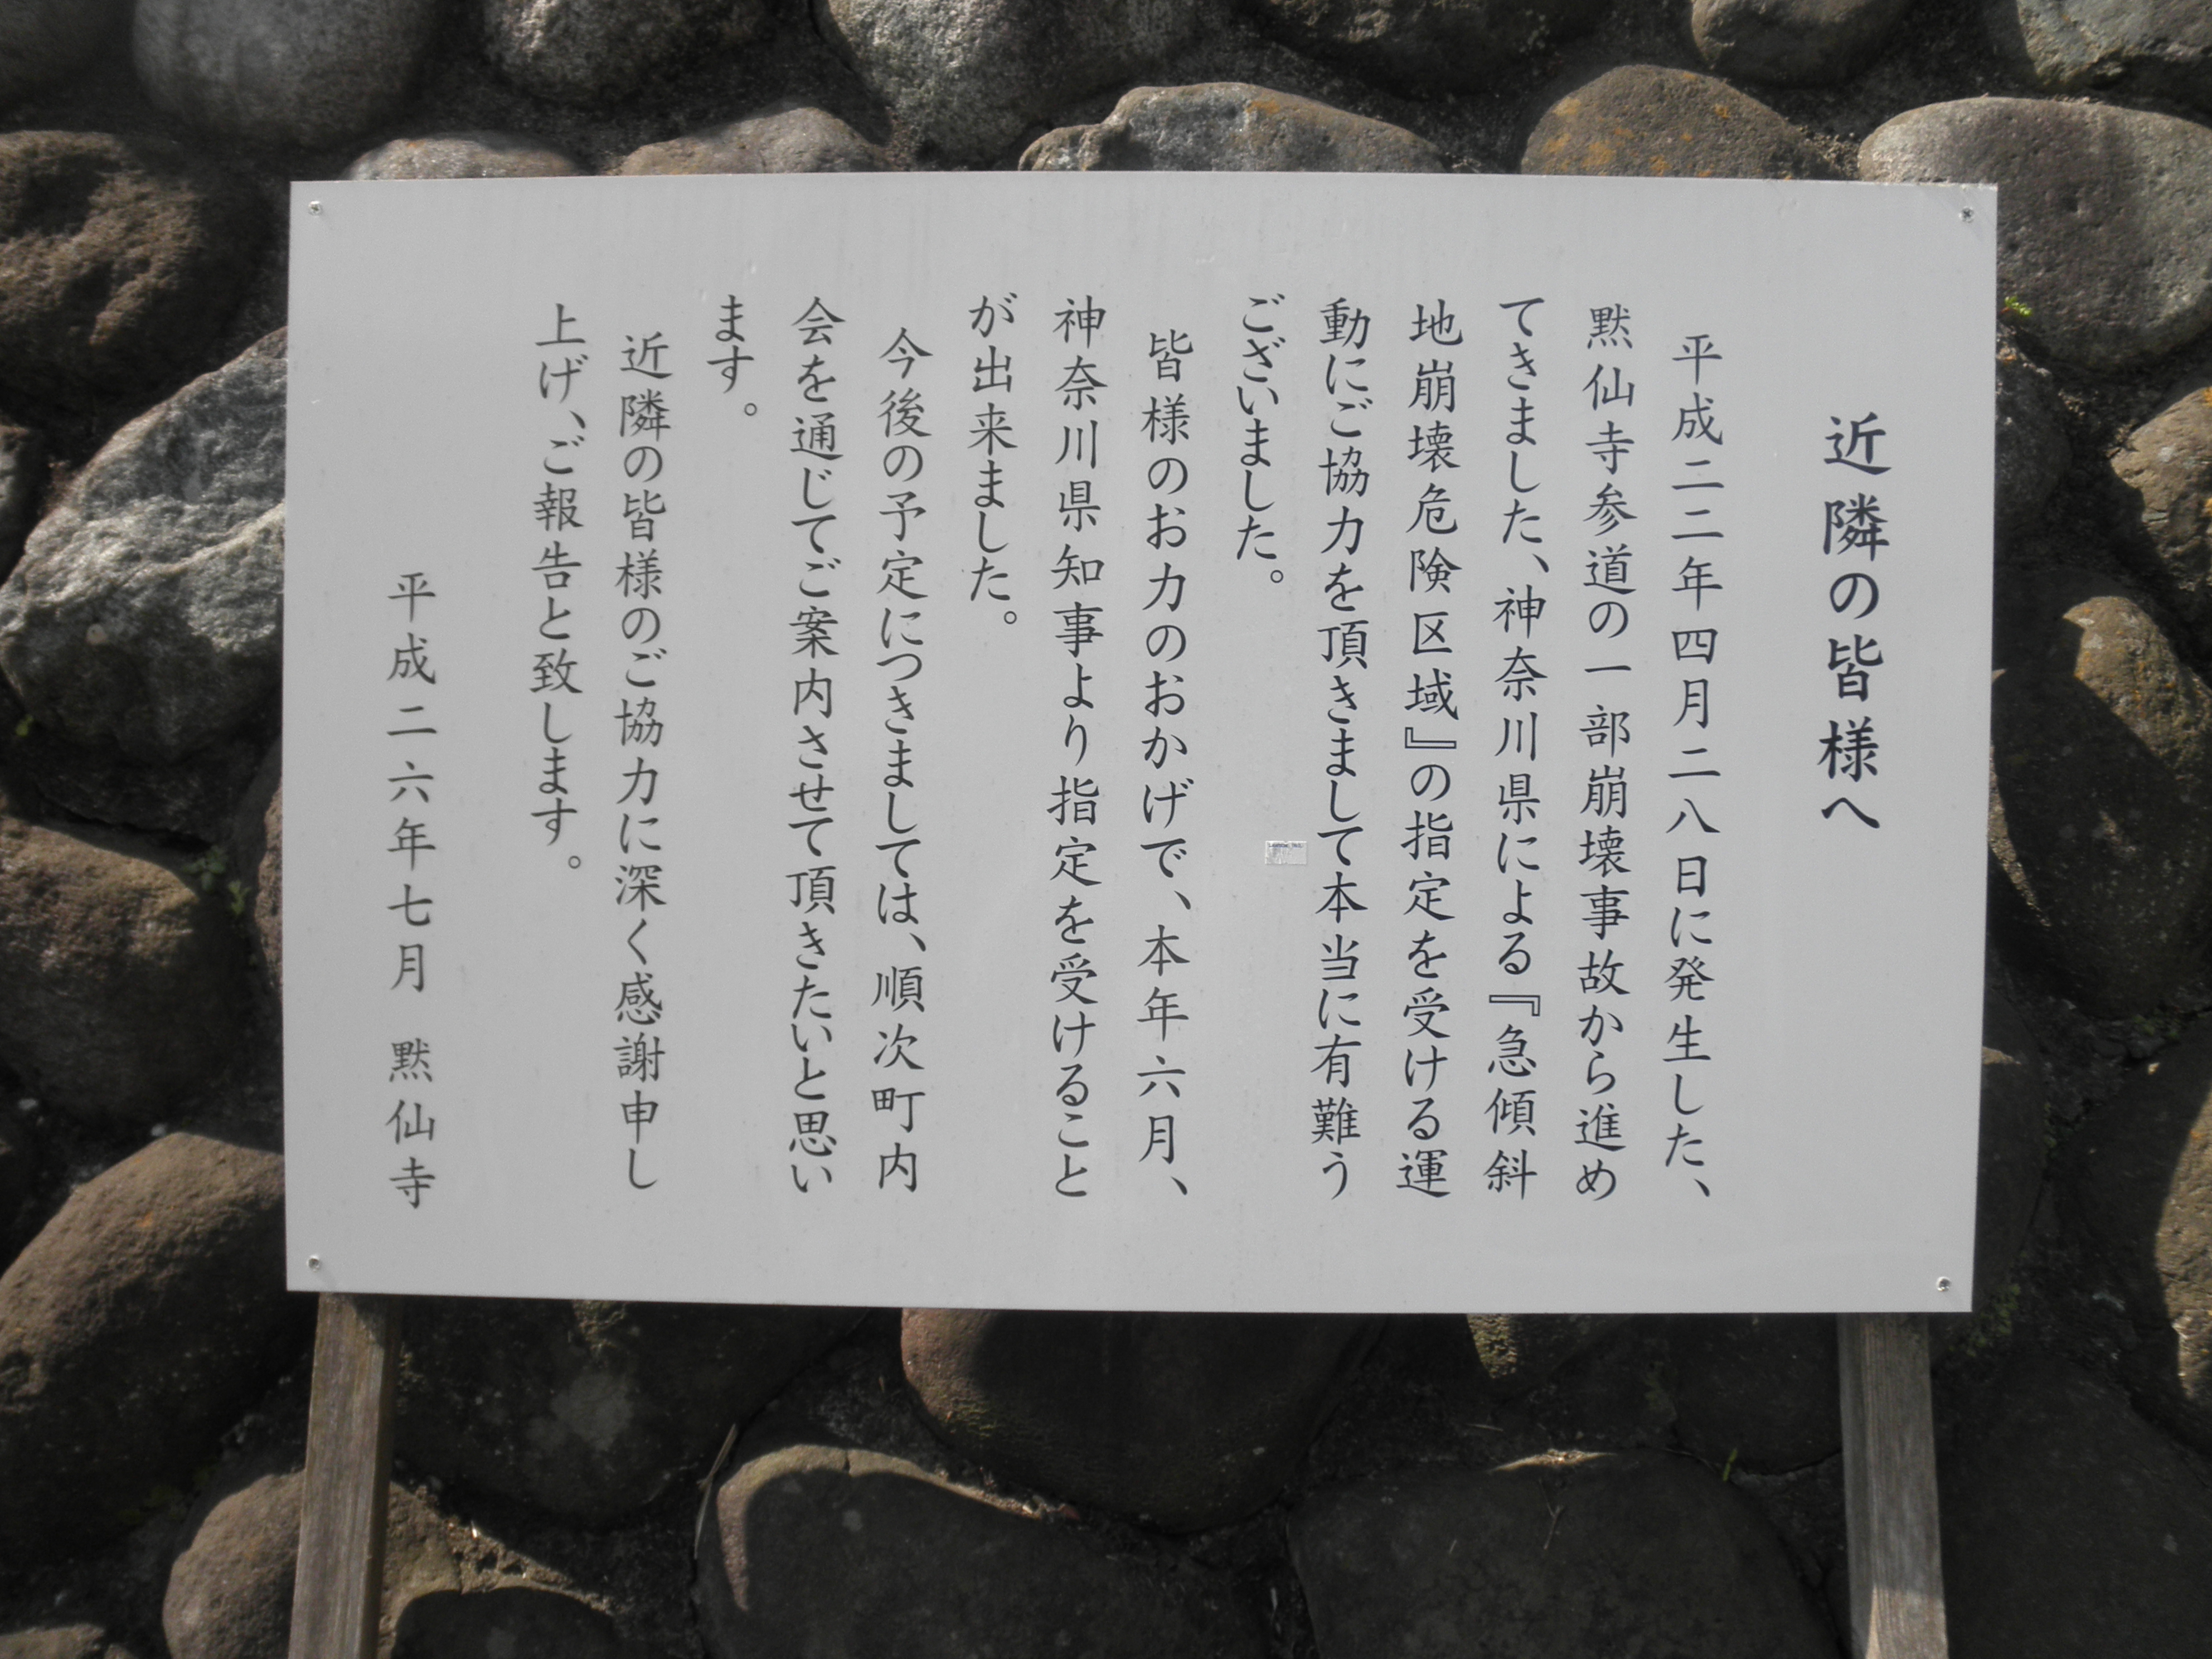 近隣の皆様へ
平成二二年四月二八日に発生した、
黙仙寺参道の一部崩壊事故から進め
てきました、神奈川県による『急傾斜
地崩壊危険区域』の指定を受ける運
動にご協力を頂きまして本当に有難う
ございました。
皆様のお力のおかげで、本年六月、
神奈川県知事より指定を受けること
が出来ました。
今後の予定につきましては、順次町内
会を通じてご案内させて頂きたいと思い
ます。
近隣の皆様のご協力に深く感謝申し
上げ、ご報告と致します。
平成二六年七月 黙仙寺